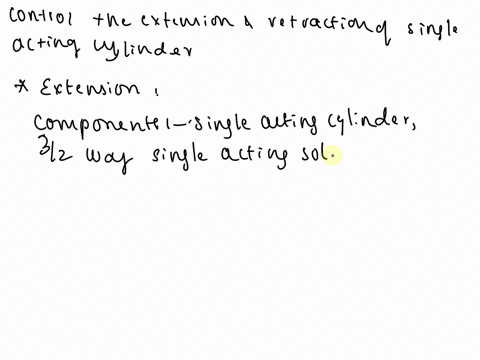 control the extension & retraction of single
acting cylinder
* Extension,
components:- single acting cylinder,
3/2 way single acting sol.